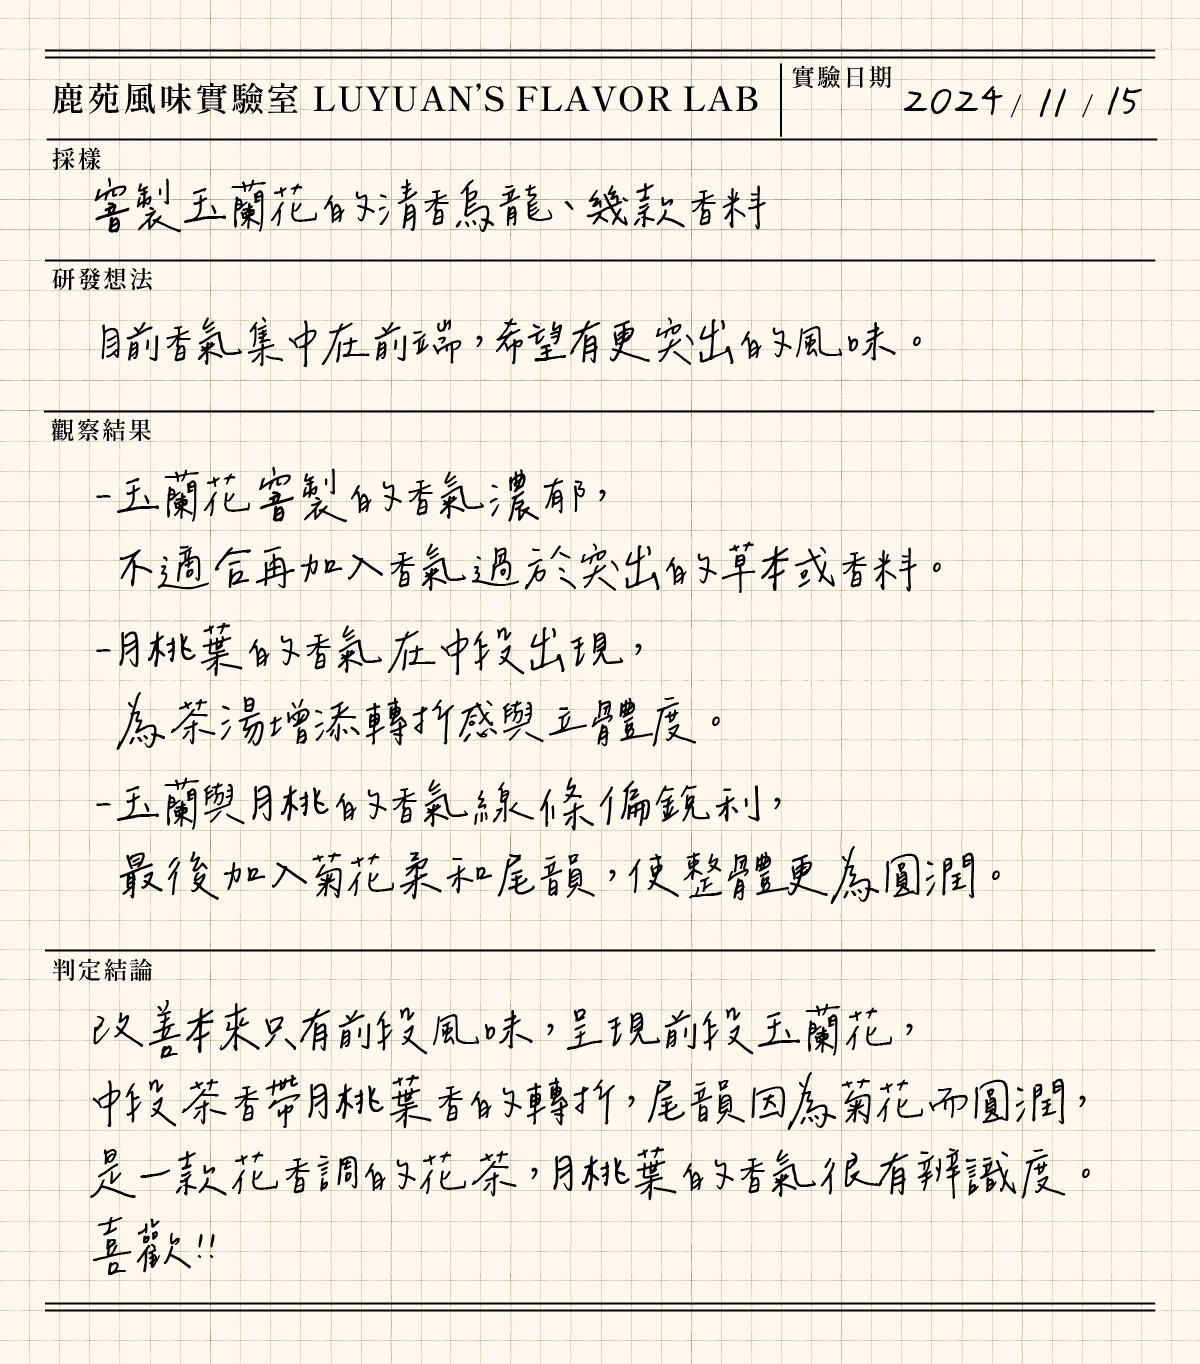 鹿苑風味實驗室 LUYUAN'S FLAVOR LAB
實驗日期 2024/11/15
採樣
窨製玉蘭花的清香烏龍、幾款香料
研發想法
目前香氣集中在前端，希望有更突出的風味。
觀察結果
-玉蘭花窨製的香氣濃郁，
不適合再加入香氣過於突出的草本或香料。
-月桃葉的香氣在中段出現，
為茶湯增添轉折感與立體度。
-玉蘭與月桃的香氣線條偏銳利，
最後加入菊花柔和尾韻，使整體更為圓潤。
判定結論
改善本來只有前段風味，呈現前段玉蘭花，
中段茶香帶月桃葉香的轉折，尾韻因為菊花而圓潤，
是一款花香調的花茶，月桃葉的香氣很有辨識度。
喜歡!!